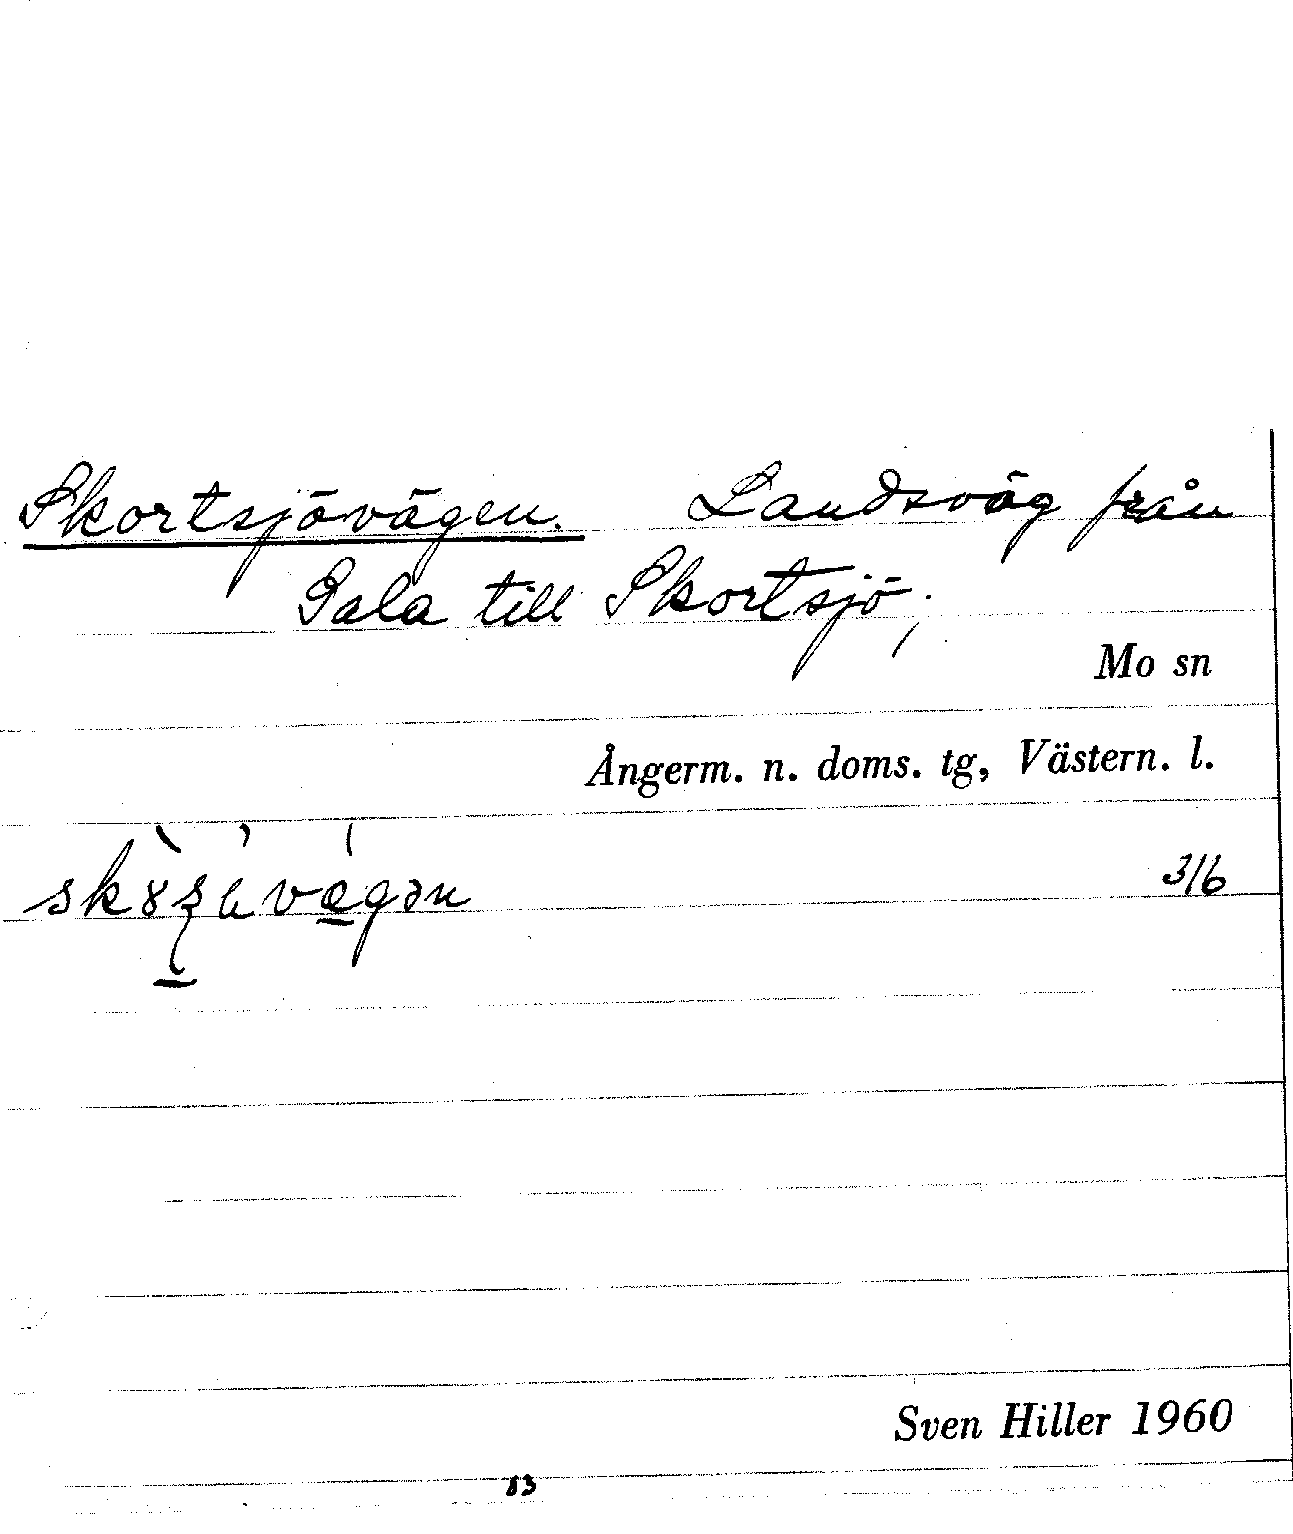 Skortsjövägen. Landsväg från
Gala till Skortsjö;
Mo sn
Ångerm. n. doms. tg, Västern. l.
3/6
Sven Hiller 1960
83